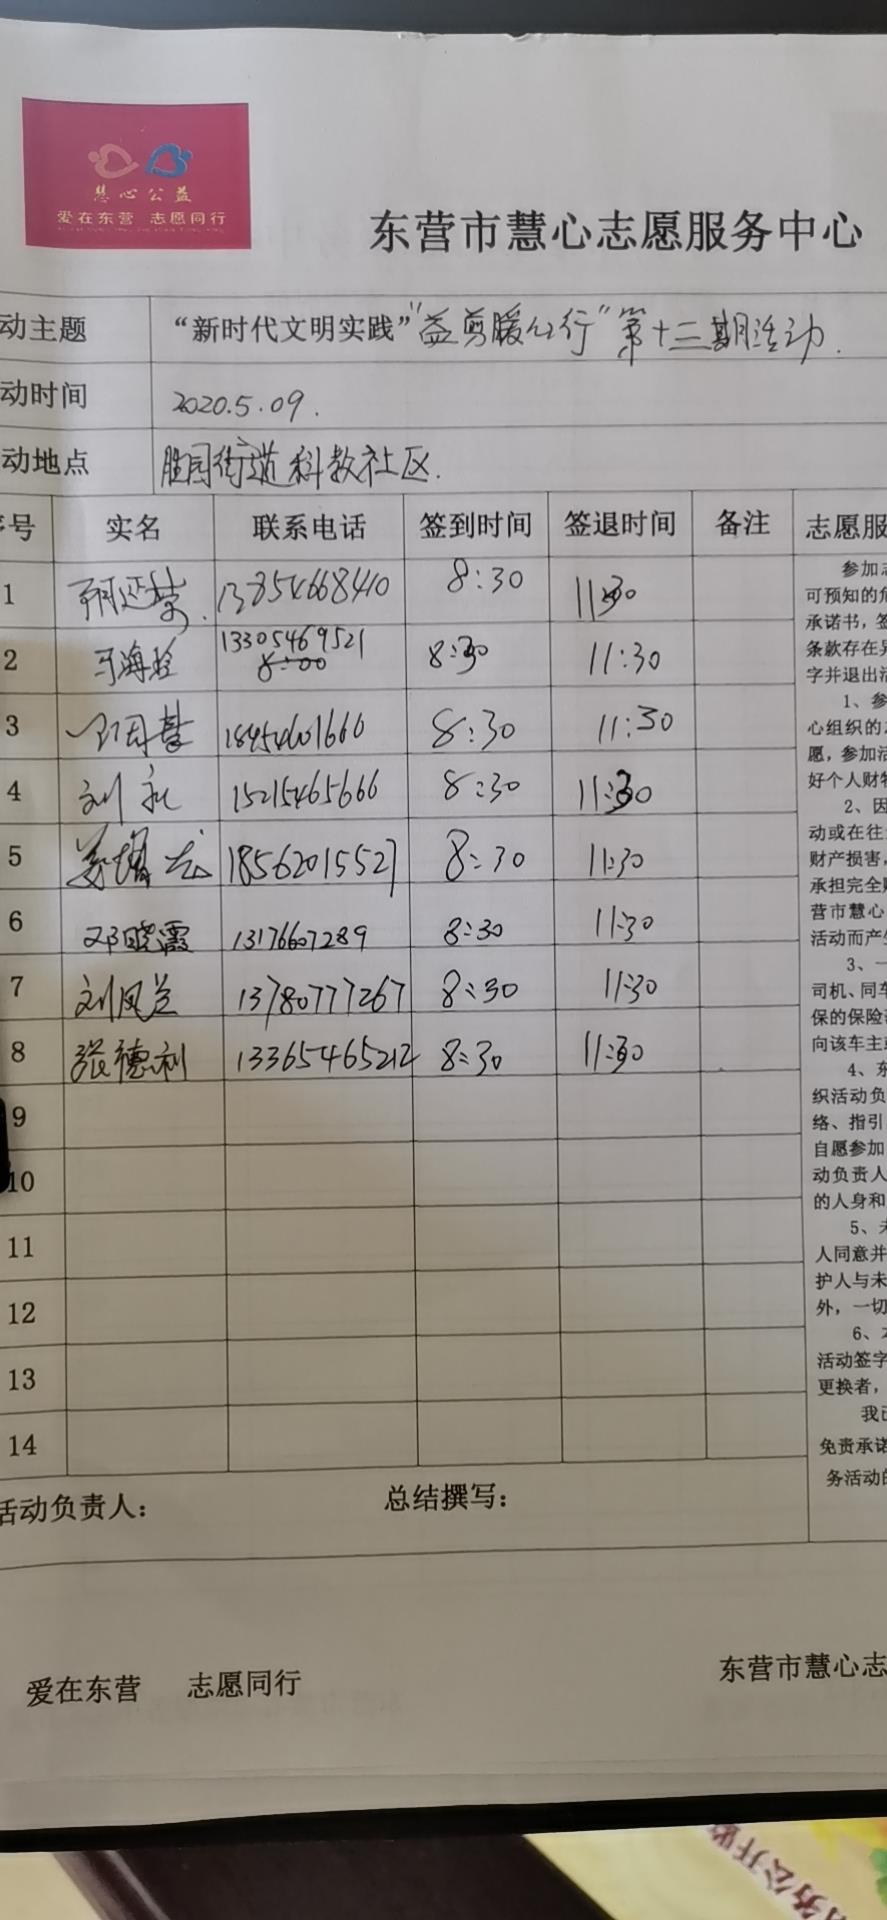 慧心公益
爱在东营 志愿同行
东营市慧心志愿服务中心
动主题 “新时代文明实践”“益剪暖心行”第十三期活动.
动时间 2020.5.09.
动地点 胜园街道科教社区.
序号 实名 联系电话 签到时间 签退时间 备注 志愿服
1 13854668410 8:30 11:30
2 13305469521 8:30 11:30
8:00
3 18454601666 8:30 11:30
4 刘 15215465666 8:30 11:30
5 姜增志 18562015527 8:30 11:30
6 邓晓霞 13176607289 8:30 11:30
7 刘凤兰 13780777267 8:30 11:30
8 张德利 13365465212 8:30 11:30
9
10
11
12
13
14
活动负责人： 总结撰写：
参加志
可预知的危
承诺书，签
条款存在异
字并退出活
1、参
心组织的
愿，参加活
好个人财物
2、因
动或在往
财产损害，
承担完全
营市慧心
活动而产生
3、一
司机、同车
保的保险
向该车主
4、东
织活动负
络、指引
自愿参加
动负责人
的人身和
5、未
人同意并
护人与未
外，一切
6、本
活动签字
更换者，
我已
免责承诺
务活动的
爱在东营 志愿同行 东营市慧心志
务公开